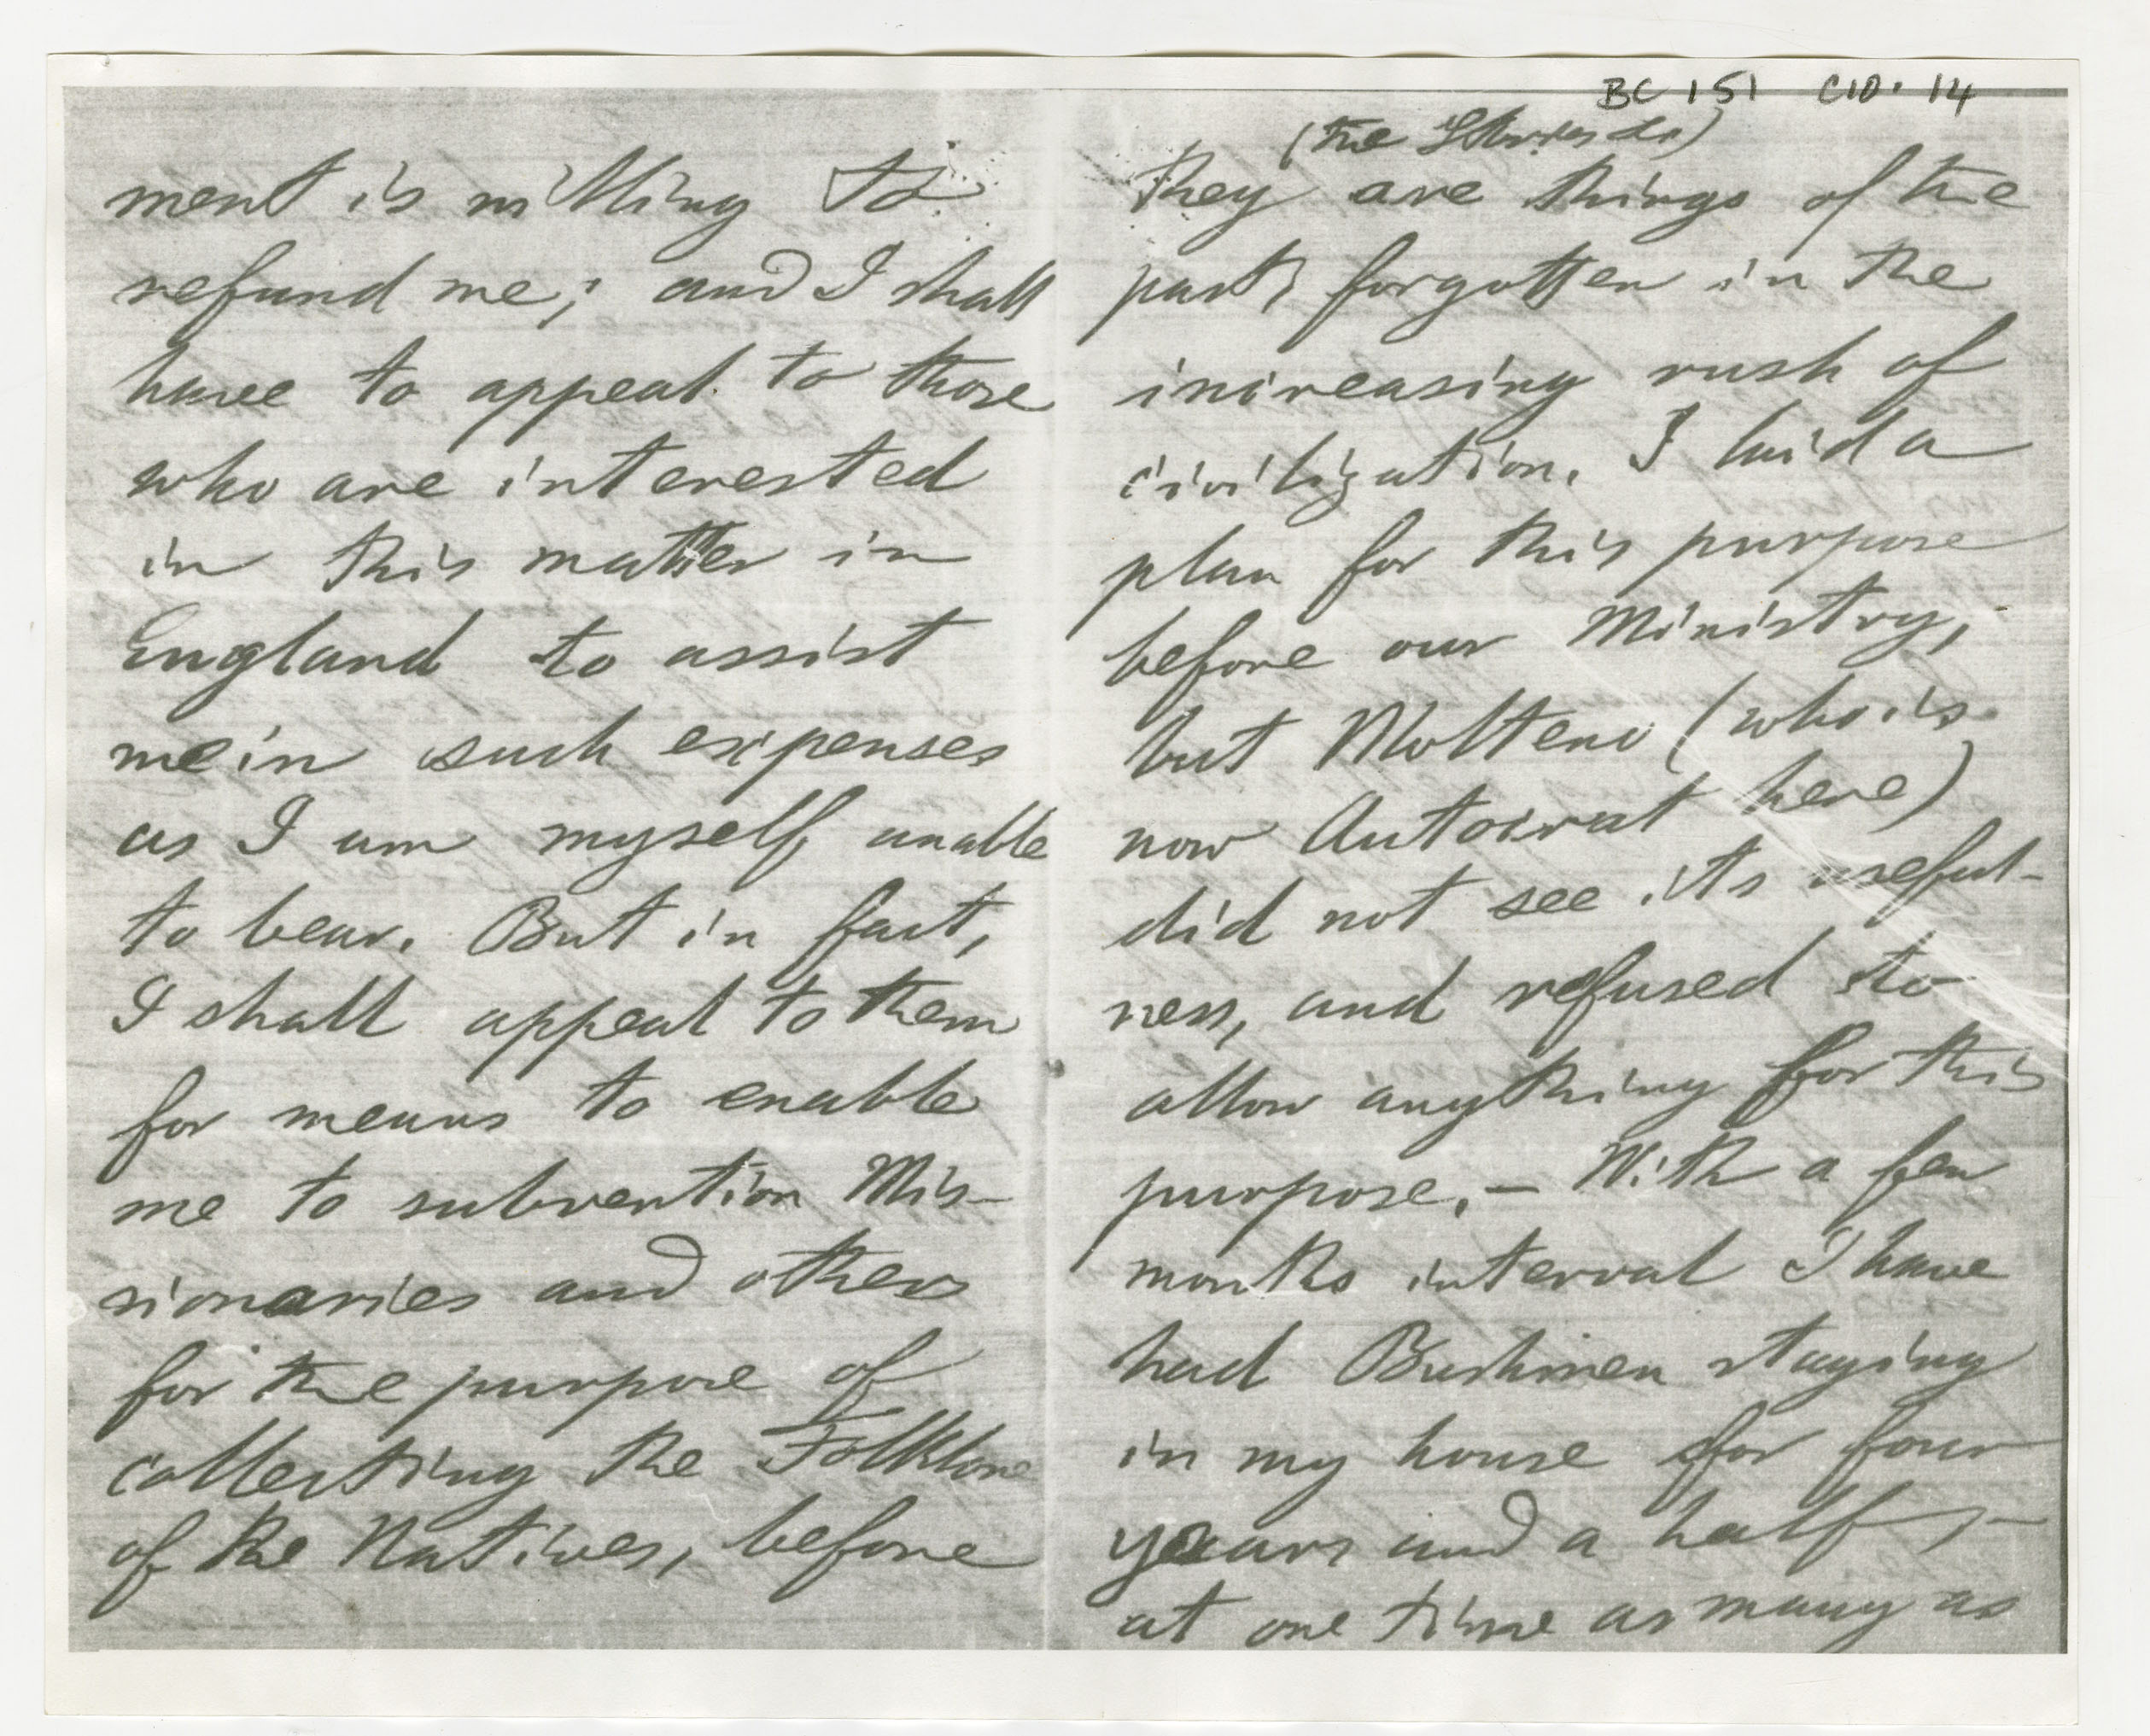 BC 151 C10. 14
ment is willing to
refund me; and I shall
have to appeal to those
who are interested
in this matter in
England to assist
me in such expenses
as I am myself unable
to bear. But in fact,
I shall appeal to them
for means to enable
me to subvention Mis-
sionaries and others
for the purpose of
collecting the Folklore
of the Natives, before
(the Stories &c)
they are things of the
past, forgotten in the
increasing rush of
civilization. I laid a
plan for this purpose
before our Ministry,
but Molteno (who is
now Autocrat here)
did not see its useful-
ness, and refused to
allow anything for this
purpose. – With a few
months interval I have
had Bushmen staying
in my house for four
years and a half, –
at one time as many as